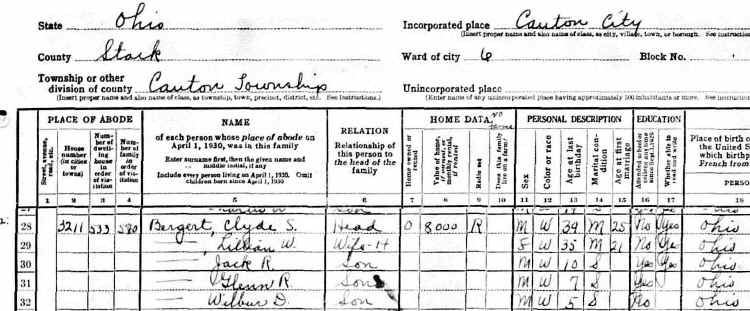 State Ohio Incorporated place Canton City
(Insert proper name and also name of class, as city, village, town, or borough. See instructions
County Stark Ward of city 6 Block No.
Township or other
division of county Canton Township Unincorporated place
(Insert proper name and also name of class, as township, town, precinct, district, etc. See instructions.) (Enter name of any unincorporated place having approximately 500 inhabitants or more. See instructions
PLACE OF ABODE NAME RELATION HOME DATA PERSONAL DESCRIPTION EDUCATION
Street, avenue, road, etc. House number (in cities or towns) Number of dwelling house in order of visitation Number of family in order of visitation
of each person whose place of abode on April 1, 1930, was in this family
Enter surname first, then the given name and middle initial, if any
Include every person living on April 1, 1930. Omit children born since April 1, 1930
Relationship of this person to the head of the family
Home owned or rented Value of home, if owned, or monthly rental, if rented Radio set Does this family live on a farm?
Sex Color or race Age at last birthday Marital condition Age at first marriage
Attended school or college any time since Sept. 1, 1929 Whether able to read and write
Place of birth o
the United S
which birthp
French from
PERSO
1 2 3 4 5 6 7 8 9 10 11 12 13 14 15 16 17 18
28 3211 533 580 Bergert, Clyde S. Head O 8000 R M W 39 M 25 No Yes Ohio
29 Lillian W. Wife-H F W 35 M 21 No Yes Ohio
30 Jack R. Son M W 10 S Yes Yes Ohio
31 Glenn R. Son M W 7 S Yes Ohio
32 Wilbur D. Son M W 5 S No Ohio